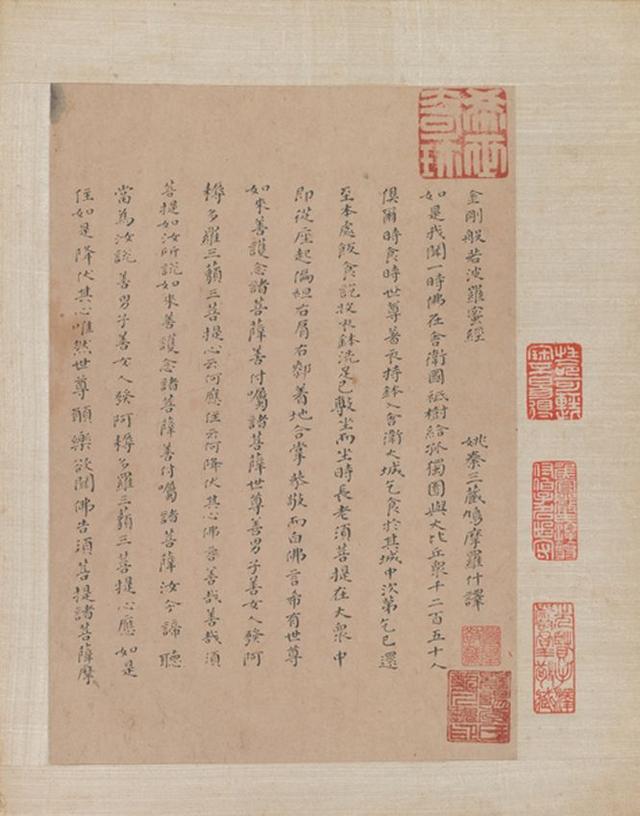 希世奇珍
金剛般若波羅蜜經
姚秦三藏鳩摩羅什譯
如是我聞一時佛在舍衛國祇樹給孤獨園與大比丘眾千二百五十人
俱爾時食時世尊著衣持鉢入舍衛大城乞食於其城中次第乞已還
至本處飯食訖收衣鉢洗足已敷坐而坐時長老須菩提在大眾中
即從座起偏袒右肩右膝著地合掌恭敬而白佛言希有世尊
如來善護念諸菩薩善付囑諸菩薩世尊善男子善女人發阿
耨多羅三藐三菩提心云何應住云何降伏其心佛言善哉善哉須
菩提如汝所說如來善護念諸菩薩善付囑諸菩薩汝今諦聽
當為汝說善男子善女人發阿耨多羅三藐三菩提心應如是
住如是降伏其心唯然世尊願樂欲聞佛告須菩提諸菩薩摩